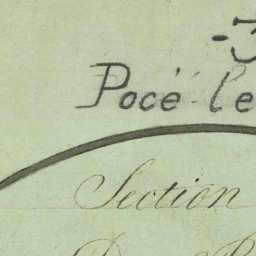 Pocé le
Section